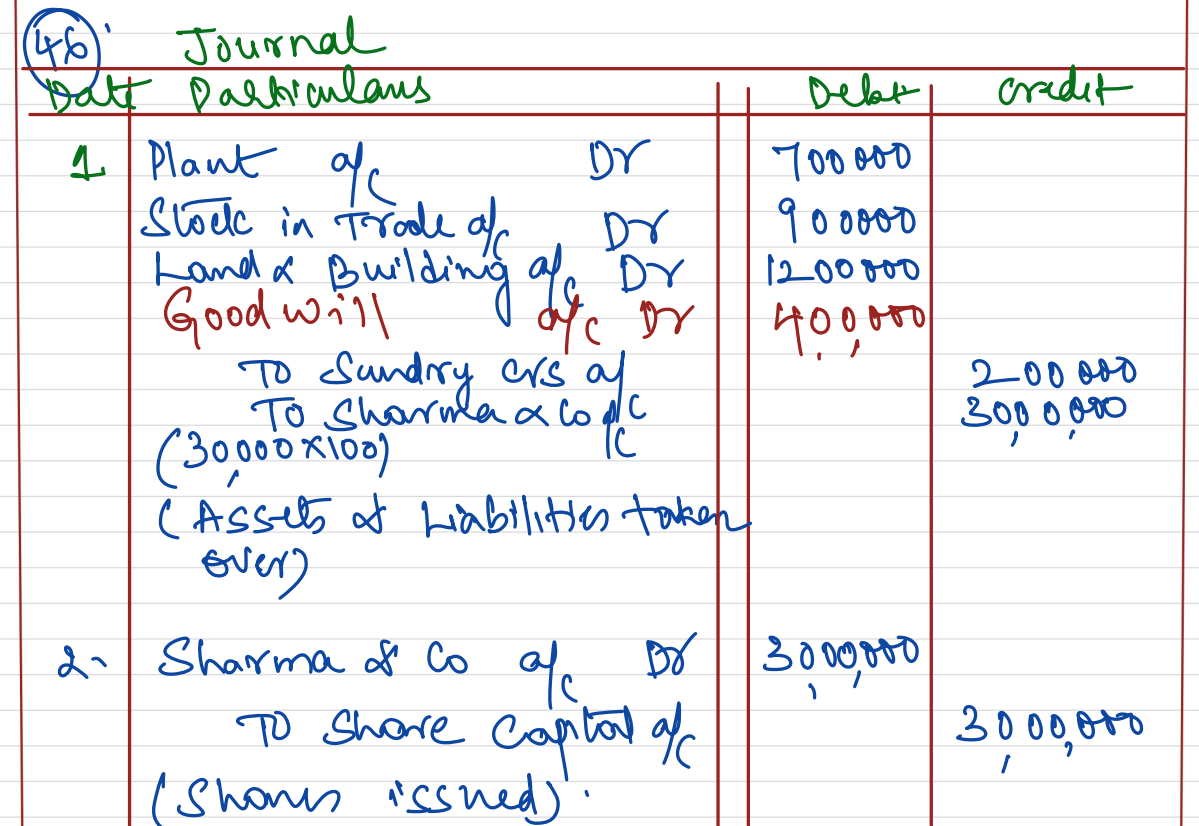 46.
Journal
Date Particulars Debt Credit
1. Plant a/c Dr 700000
Stock in Trade a/c Dr 900000
Land & Building a/c Dr 1200000
Goodwill a/c Dr 4,00,000
To Sundry crs a/c 200000
To Sharma & Co a/c 30,00,000
(30,000 X 100)
(Assets & Liabilities taken
over)
2. Sharma & Co a/c Dr 30,00,000
To Share Capital a/c 30,00,000
(Shares issued).